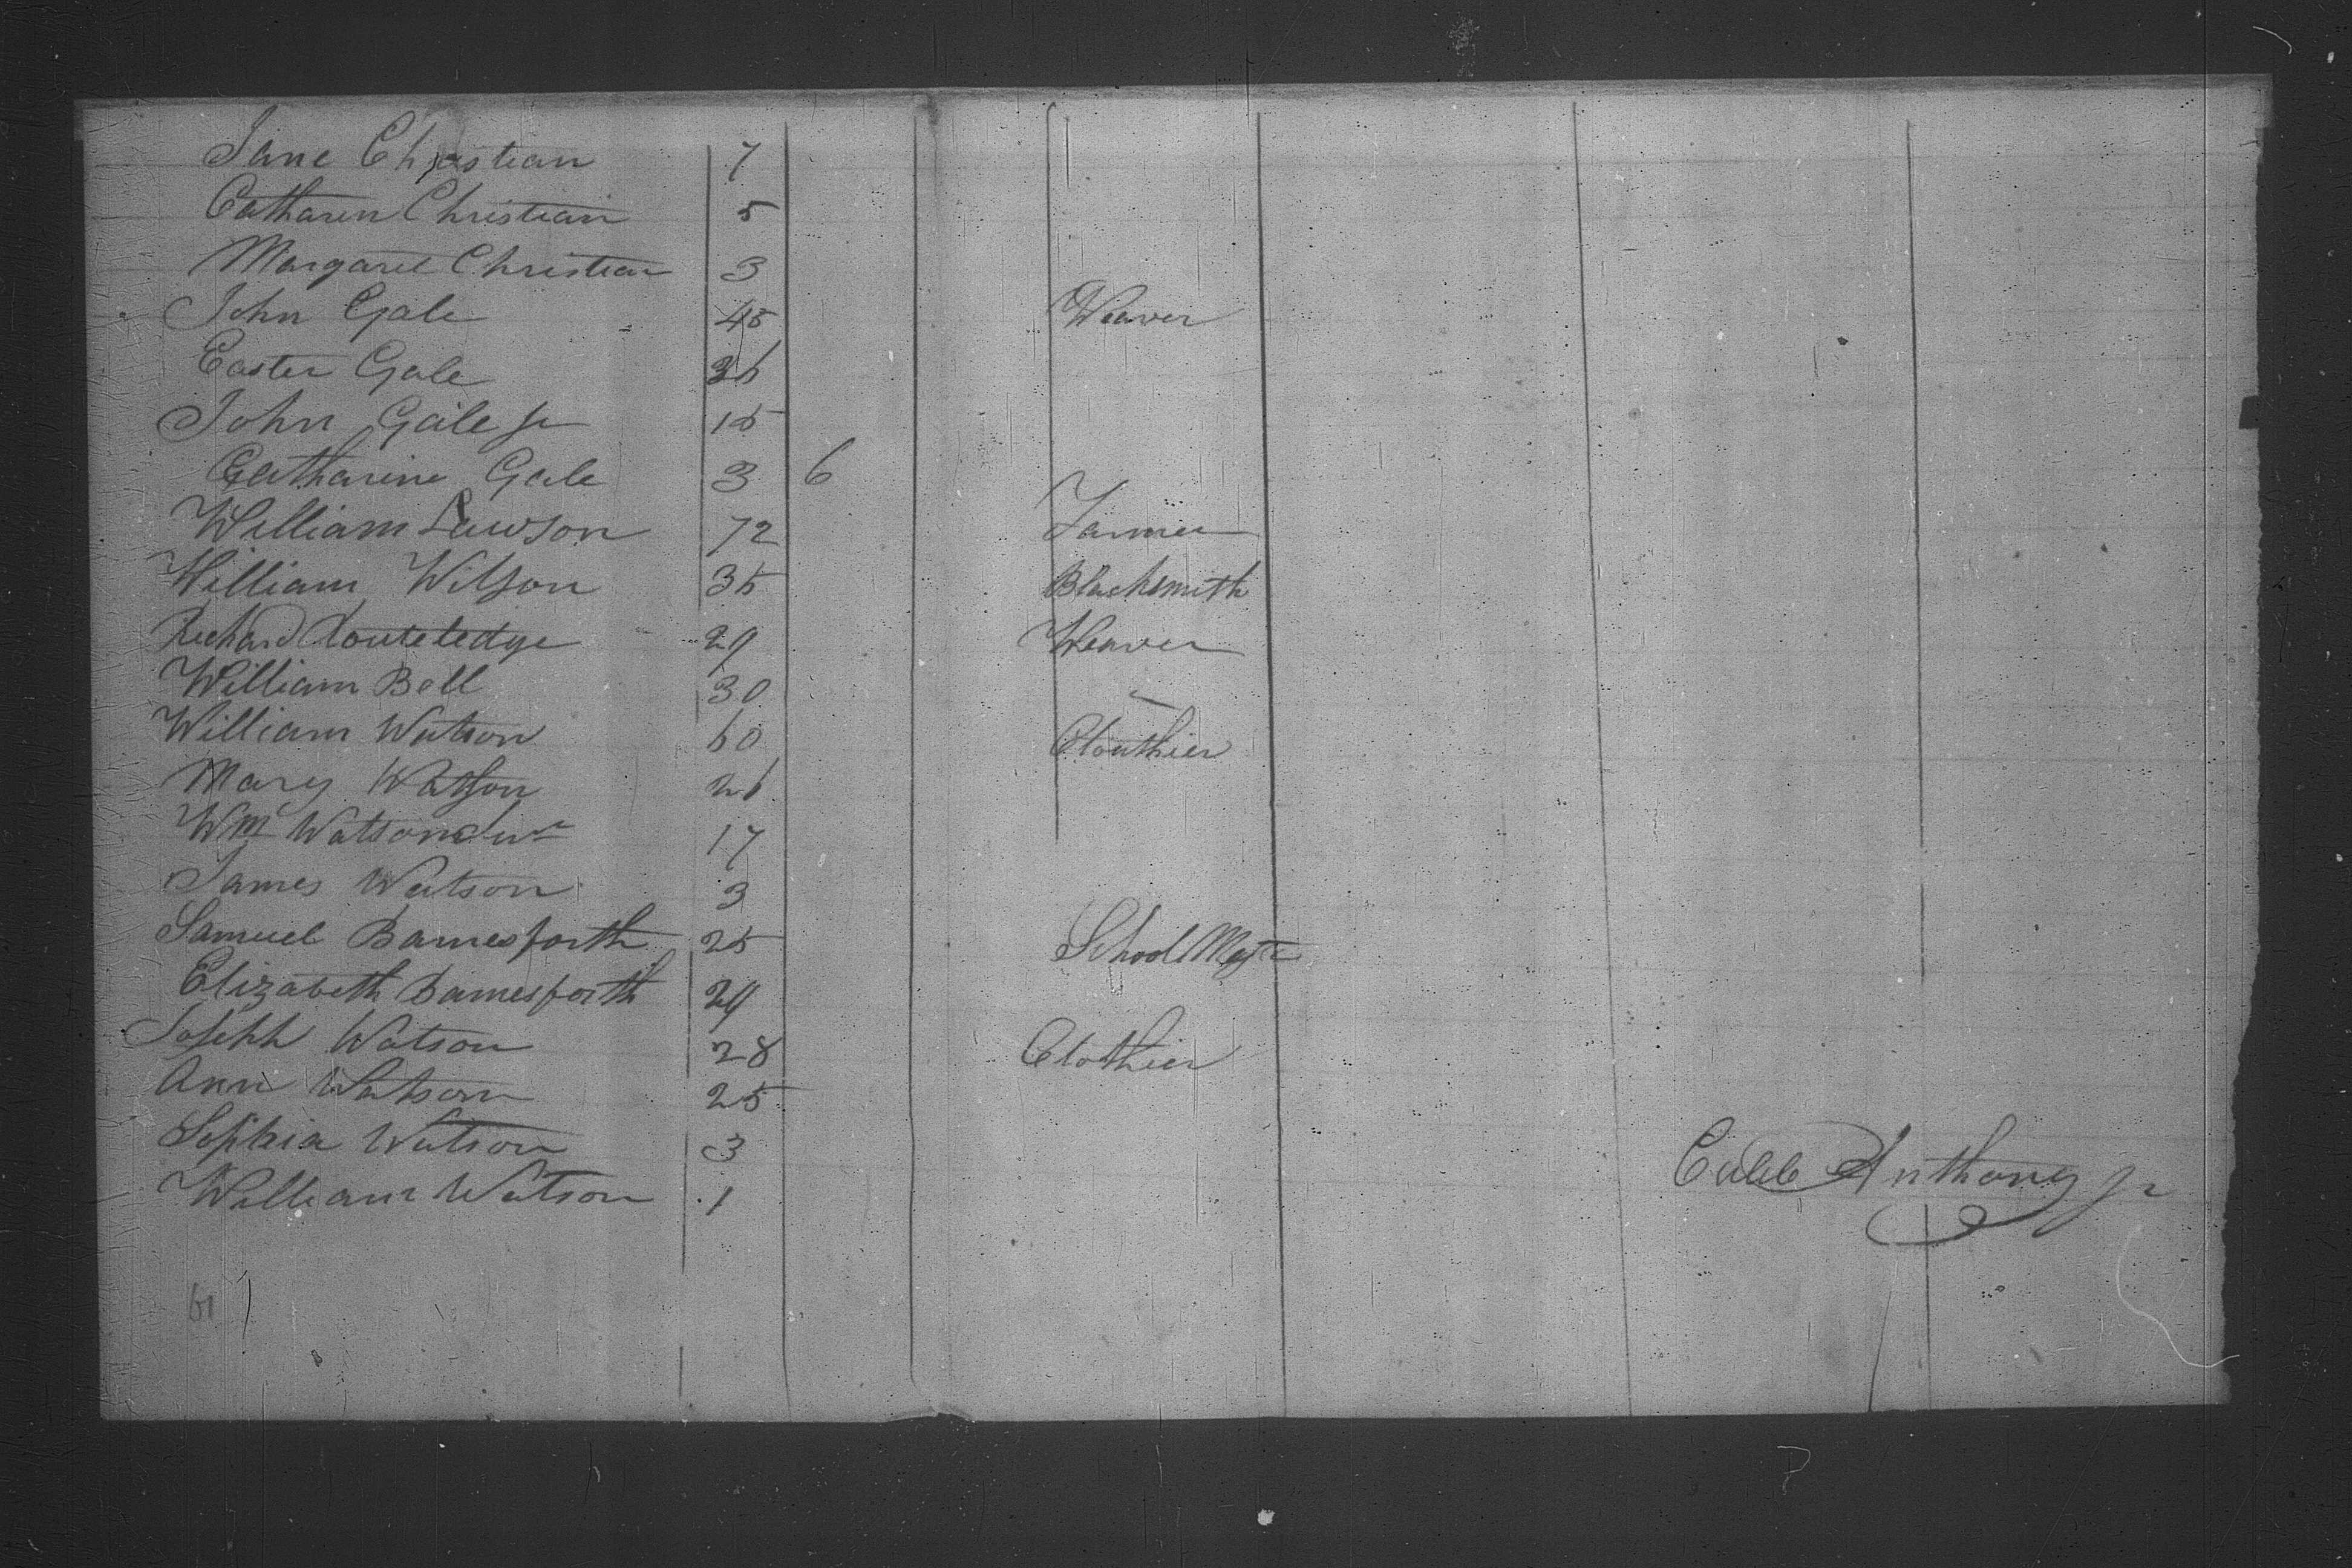 Jane Christian 7
Catharen Christian 5
Margaret Christian 3
John Gale 45 Weaver
Easter Gale 36
John Gale Jr 15
Catharine Gale 3 6
William Lawson 72 Farmer
William Wilson 35 Blacksmith
Richard Routeledge 29 Weaver
William Bell 30 -
William Watson 60 Clouthier
Mary Watson 26
Wm Watson Junr 17
James Watson 3
Samuel Bamesforth 25 School Mastr
Elizabeth Bamesforth 24
Joseph Watson 28 Clothier
Ann Watson 25
Sophia Watson 3
William Watson 1
Caleb Anthony Jr
61